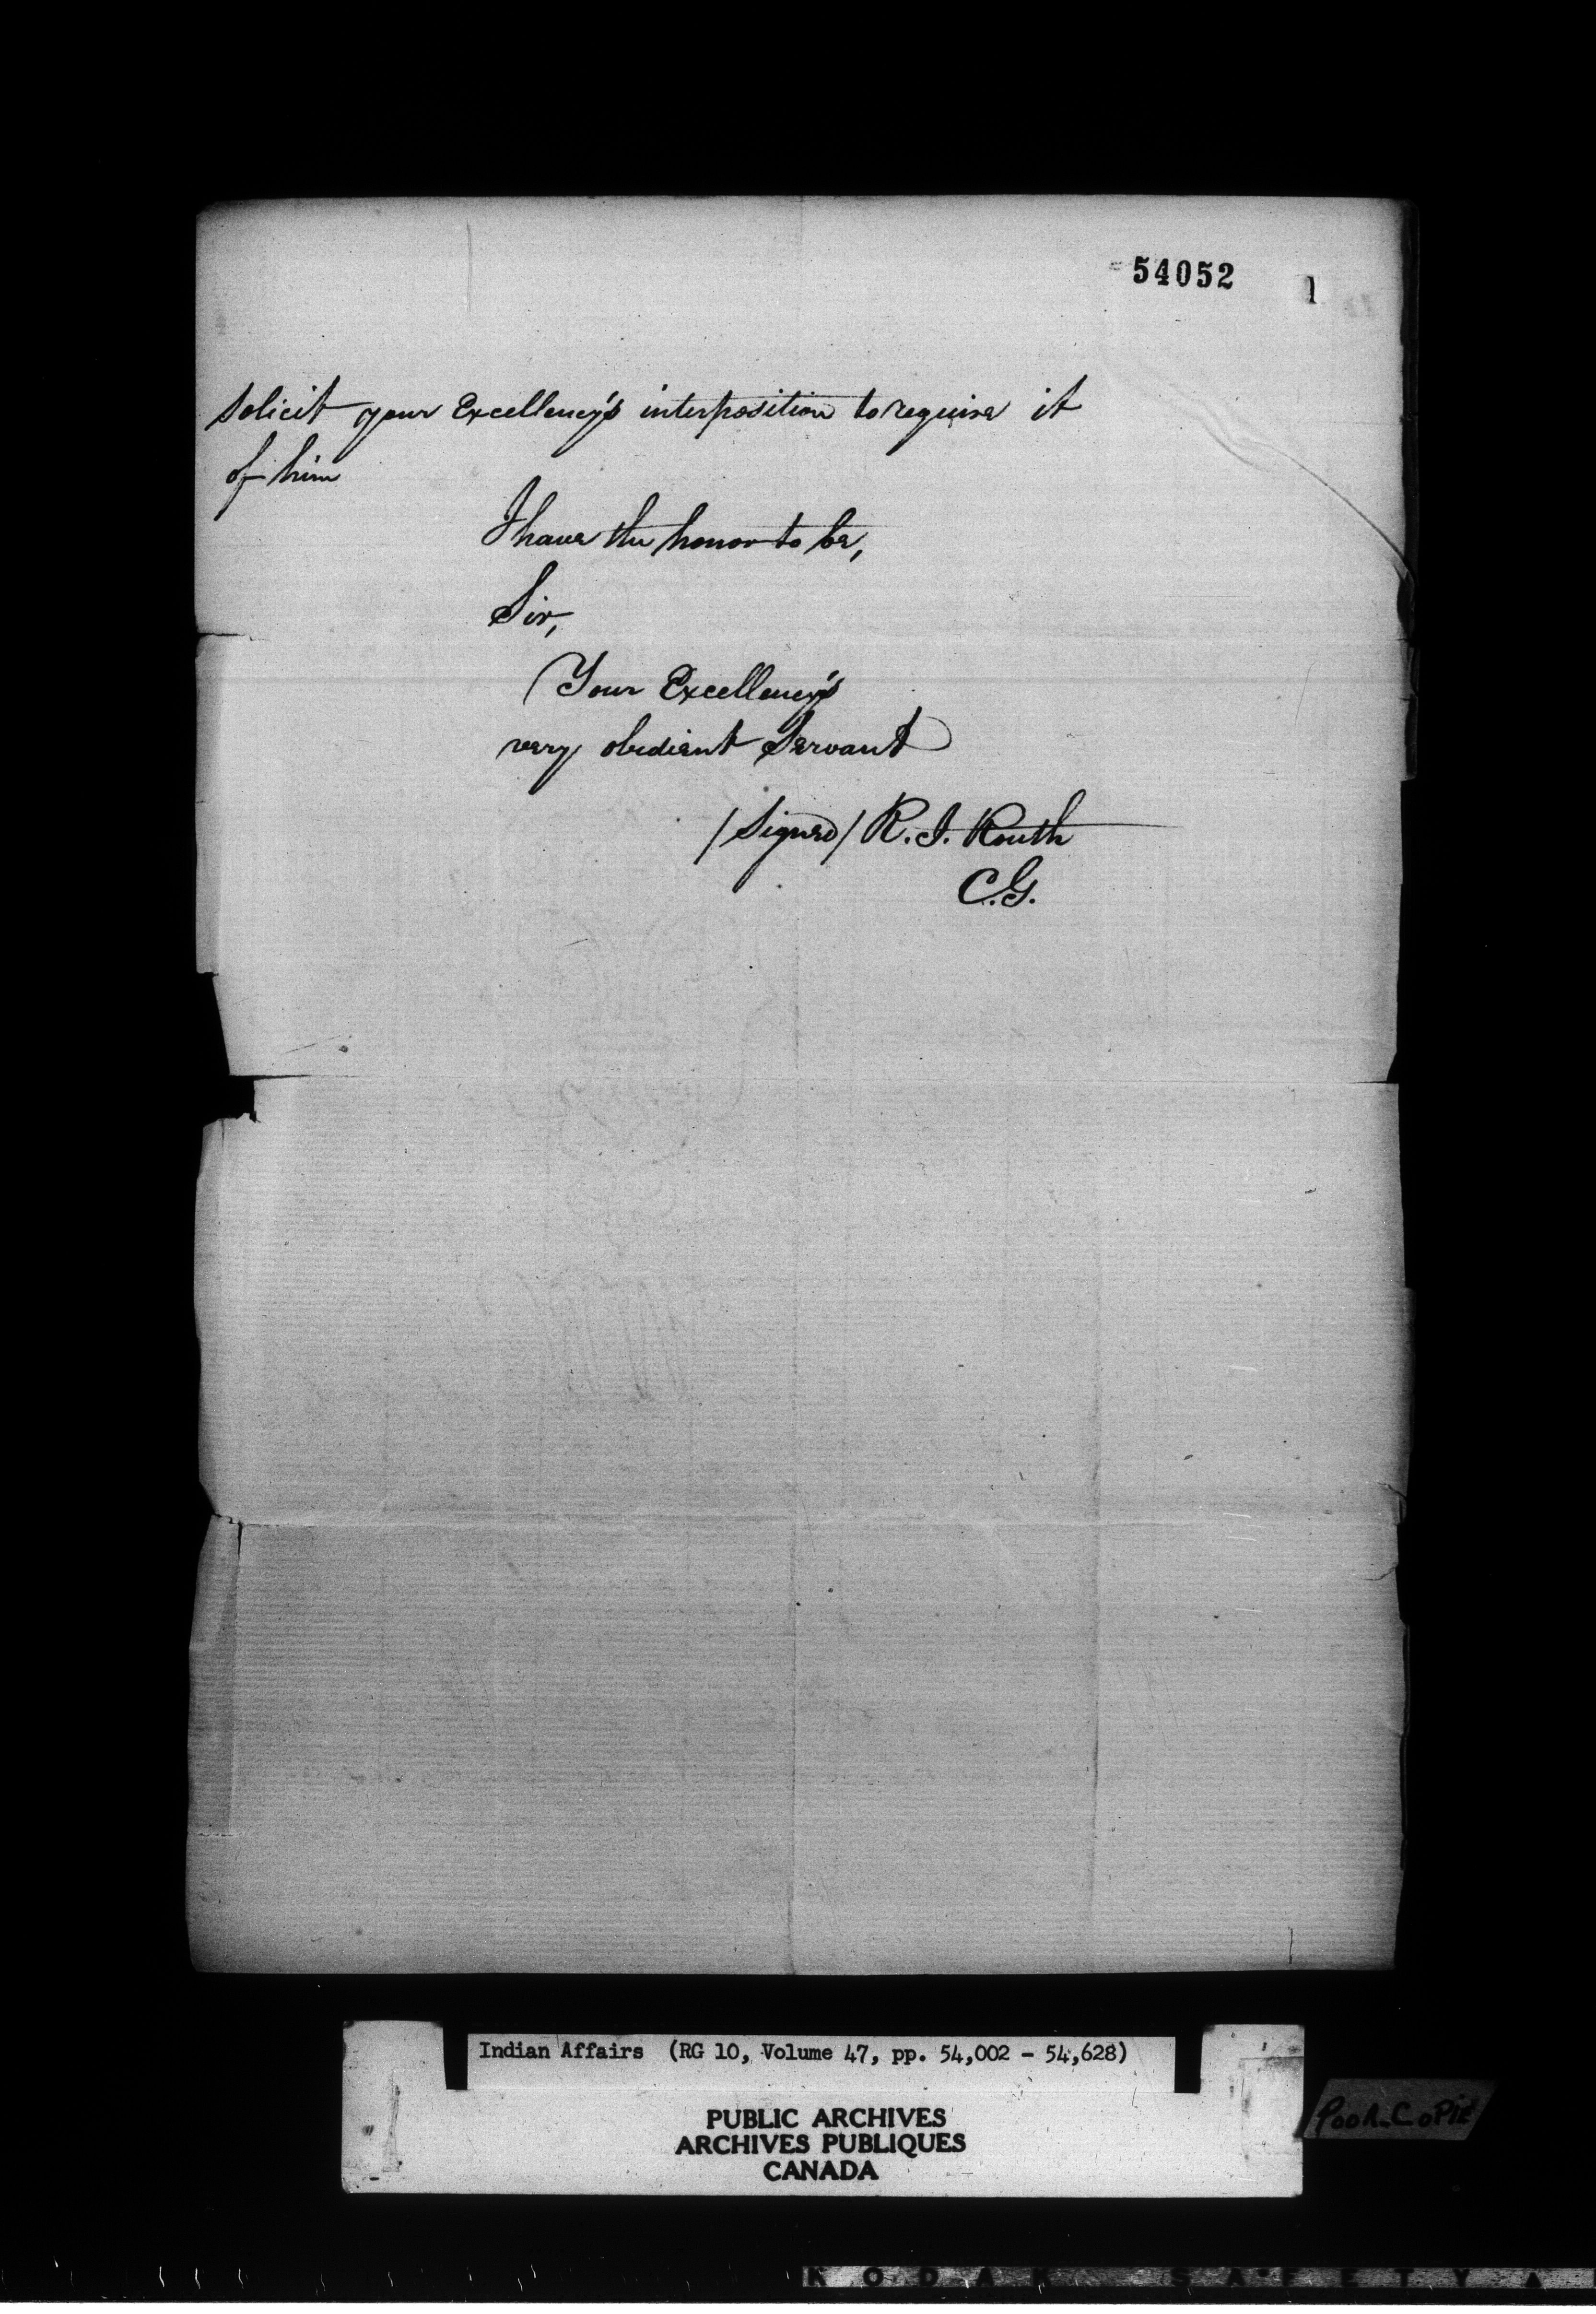 54052
1
solicit your Excellency's interposition to require it
of him
I have the honor to be,
Sir,
Your Excellency's
very obedient Servant
/Signed/ R. I. Routh
C.G.
Indian Affairs (RG 10, Volume 47, pp. 54,002 - 54,628)
PUBLIC ARCHIVES
ARCHIVES PUBLIQUES
CANADA
POOR COPIE
KODAK SAFETY